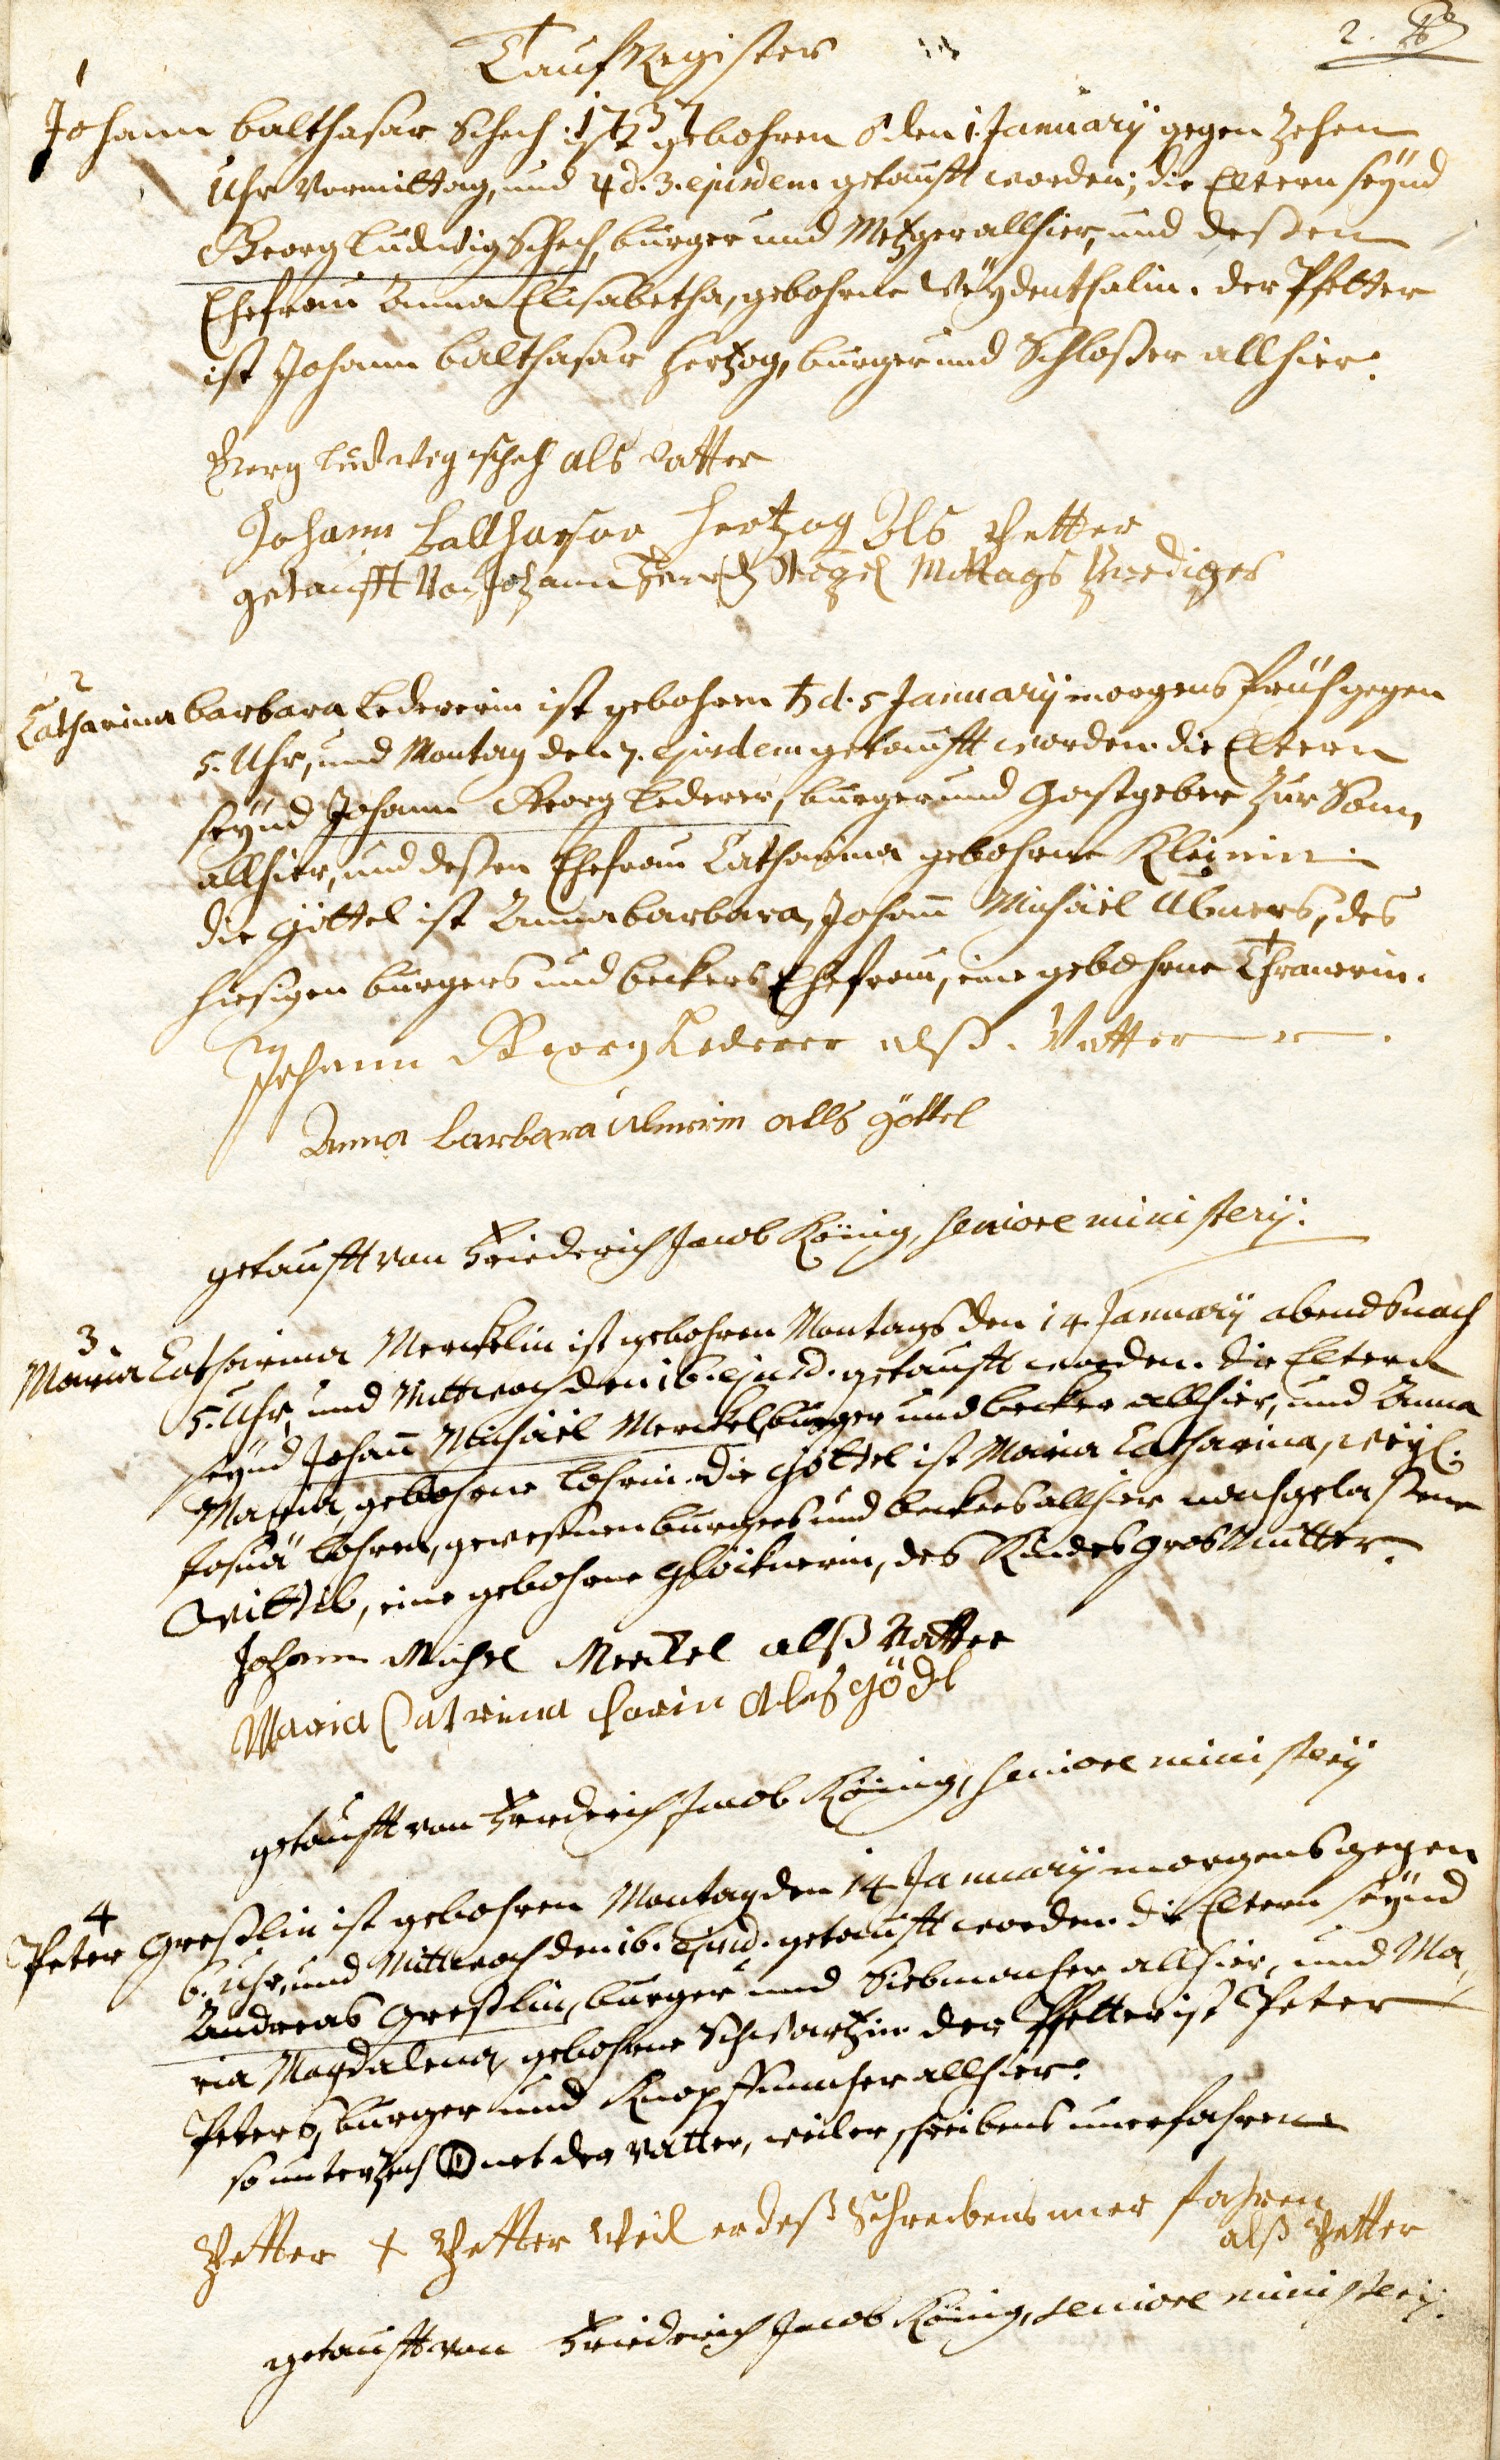 2.
Tauf Register
1737
1
Johann Balthasar Schech ist gebohren ♂ den 1. January gegen Zehen
Uhr Vormittag, und ♃ d. 3. ejusdem getaufft worden; die Eltern seÿnd
Georg Ludwig Schech, burger und Metzger allhier, und deßen
Ehefrau Anna Elisabetha, gebohrne Weÿdenthalin. der Pfetter
ist Johann Balthasar Hertzog, burger und Schloßer allhier.
Georg Ludwig schech als Vatter
Johann Balthasar Hertzog Als Petter
getaufft Von Johann Mittags Prediger
2
Catharina Barbara Ledererin ist gebohren ♄ d. 5 January morgens früh gegen
5. Uhr, und Montag den 7. ejusdem getaufft worden. die Eltern
seÿnd Johann Georg Lederer, burger und Gastgeber zur Sonn
allhier, und deßen Ehefrau Catharina gebohrne Kleinin.
die Göttel ist Anna Barbara, Johañ Michäel Ulmers, des
hiesigen burgers und beckers Ehefrau, eine gebohrne Thranerin.
Johann Georg Lederer alß Vatter
Anna barbara Ulmerin alls göttel
getaufft von Friederich Jacob König, seniore ministerÿ.
3
Maria Catharina Merckelin ist gebohren Montags den 14. January abends nach
5. Uhr, und Mittwoch den 16. ejusd. getaufft worden. die Eltern
seÿnd Johañ Michäel Merckel, burger und becker allhier, und Anna
Maria, gebohrne Lohrin. die Göttel ist Maria Catharina, weÿl.
Josuä Lohren, gewesenen burgers und beckers allhier nachgelaßene
Wittib, eine gebohrne Glöcknerin, des Kindes Gros Mutter.
Johann Michel Merckel alß Vatter
Maria Catrina Lorin Als gödel
getaufft von Friederich Jacob König, seniore ministerÿ
4
Peter Greßlin ist gebohren Montag den 14. January morgens gegen
6. Uhr, und Mittwoch den 16. Ejusd. getaufft worden. die Eltern seÿnd
Andreas Greßlin, burger und Siebmacher allhier, und Ma,
ria Magdalena, gebohrne Schwartzin. der Pfetter ist Peter
Peters, burger und Knopffmacher allhier.
so unterzeich net der Vatter, weil er schreibens unerfahren
Petter + Petter weil er deß Schreibens uner fahren
alß Petter
getaufft von Friederich Jacob König, seniore ministerÿ.